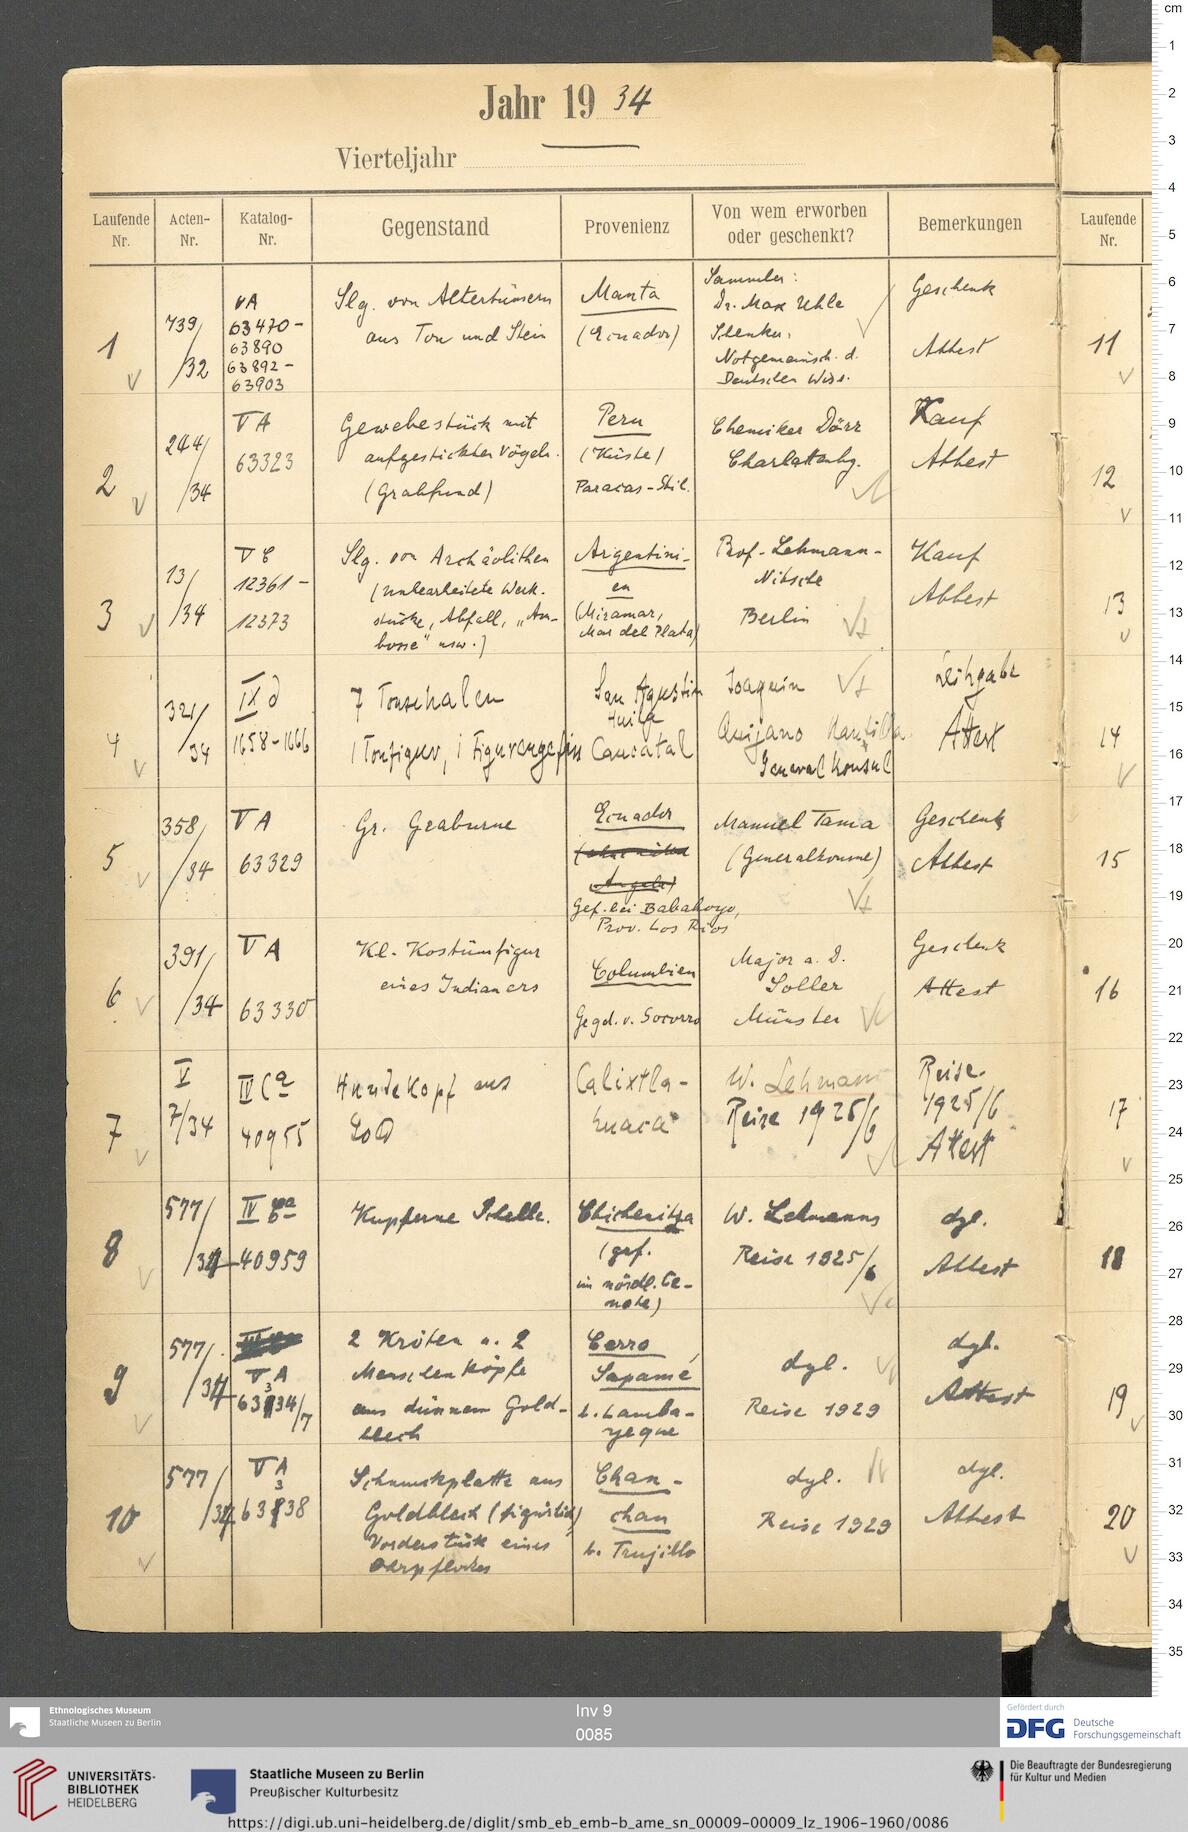 Jahr 1934
Vierteljahr
Laufende Nr.
Acten-Nr.
Katalog-Nr.
Gegenstand
Provenienz
Von wem erworben oder geschenkt?
Bemerkungen
Laufende Nr.
1
739/
/32
VA
63470-
63890
63892-
63903
Slg. von Altertümern
aus Ton und Stein
Manta
(Ecuador)
Sammler:
Dr. Max Uhle
Notgemeinsch. d.
Deutschen Wiss.
Geschenk
Attest
11
2
244/
/34
VA
63323
Gewebestück mit
aufgestickten Vögeln.
(Grabfund)
Peru
(Küste)
Paracas-Stil.
Chemiker Dörr
Charlottenbg.
Kauf
Attest
12
3
13/
/34
VC
12361-
12373
Slg. von Archäolithen
(unbearbeitete Werk-
stücke, Abfall, „Am-
bosse" usw.)
Argentini-
en
(Miramar,
Mar del Plata)
Prof. Lehmann-
Nitsche
Berlin
Kauf
Attest
13
4
321/
34
IX d
1658-1666
7 Tonschalen
1 Tonfigur, 1 Figurengefäss
San Agustin
Huila
Joaquin
Quijano Mantilla
Generalkonsul
Leihgabe
Attest
14
5
358/
/34
VA
63329
Gr. Graburne
Ecuador
Gef. bei Babahoyo,
Prov. Los Rios
Manuel Tama
(Generalkonsul)
Geschenk
Attest
15
6
391/
/34
VA
63330
Kl. Kostümfigur
eines Indianers
Columbien
Gegd. v. Socorro
Major a. D.
Soller
Münster
Geschenk
Attest
16
7
V
7/34
IV Ca
40955
Hundekopf aus
Calixtla-
huaca
W. Lehmann
Reise 1925/6
Reise
1925/6
Attest
17
8
577/
/34
IV Ca
40959
Kupferne Schelle.
Chichenitza
(gef.
im nördl. Ce-
note)
W. Lehmanns
Reise 1925/6
dgl.
Attest
18
9
577/
/34
VA
63334/7
2 Kröten u. 2
Menschenköpfe
aus dünnem Gold-
blech
Cerro
Sapamé
b. Lamba-
yeque
dgl.
Reise 1929
dgl.
Attest
19
10
577
/34
VA
63338
Schmuckplatte aus
Goldblech (figürlich)
Vorderstück eines
Ohrpflockes
Chan-
chan
b. Trujillo
dgl.
Reise 1929
dgl.
Attest
20
cm
1
2
3
4
5
6
7
8
9
10
11
12
13
14
15
16
17
18
19
20
21
22
23
24
25
26
27
28
29
30
31
32
33
34
35
Ethnologisches Museum
Staatliche Museen zu Berlin
Inv 9
0085
Gefördert durch
DFG Deutsche
Forschungsgemeinschaft
UNIVERSITÄTS-
BIBLIOTHEK
HEIDELBERG
Staatliche Museen zu Berlin
Preußischer Kulturbesitz
Die Beauftragte der Bundesregierung
für Kultur und Medien
https://digi.ub.uni-heidelberg.de/diglit/smb_eb_emb-b_ame_sn_00009-00009_lz_1906-1960/0086